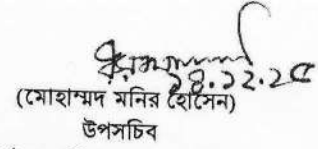 ২৪.১২.২৫
(মোহাম্মদ মনির হোসেন)
উপসচিব